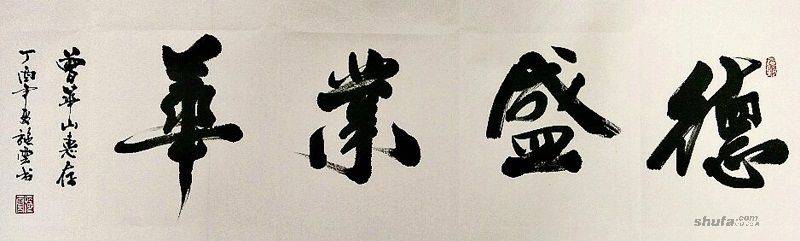 德盛業華
曾華山惠存
丁酉年夏雲书
shufa.com